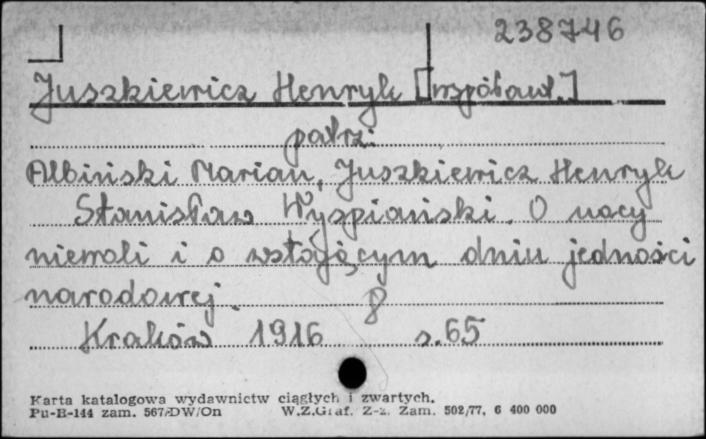 238746
Juszkiewicz Henryk [współaut.]
patrz:
Albiński Marian, Juszkiewicz Henryk
Stanisław Wyspiański. O nocy
niewoli i o wstającym dniu jedności
narodowej. 8
Kraków 1916 s. 65
Karta katalogowa wydawnictw ciągłych i zwartych.
Pu-B-144 zam. 567/DW/On W.Z.Graf. Z-z. Zam. 502/77. 6 400 000